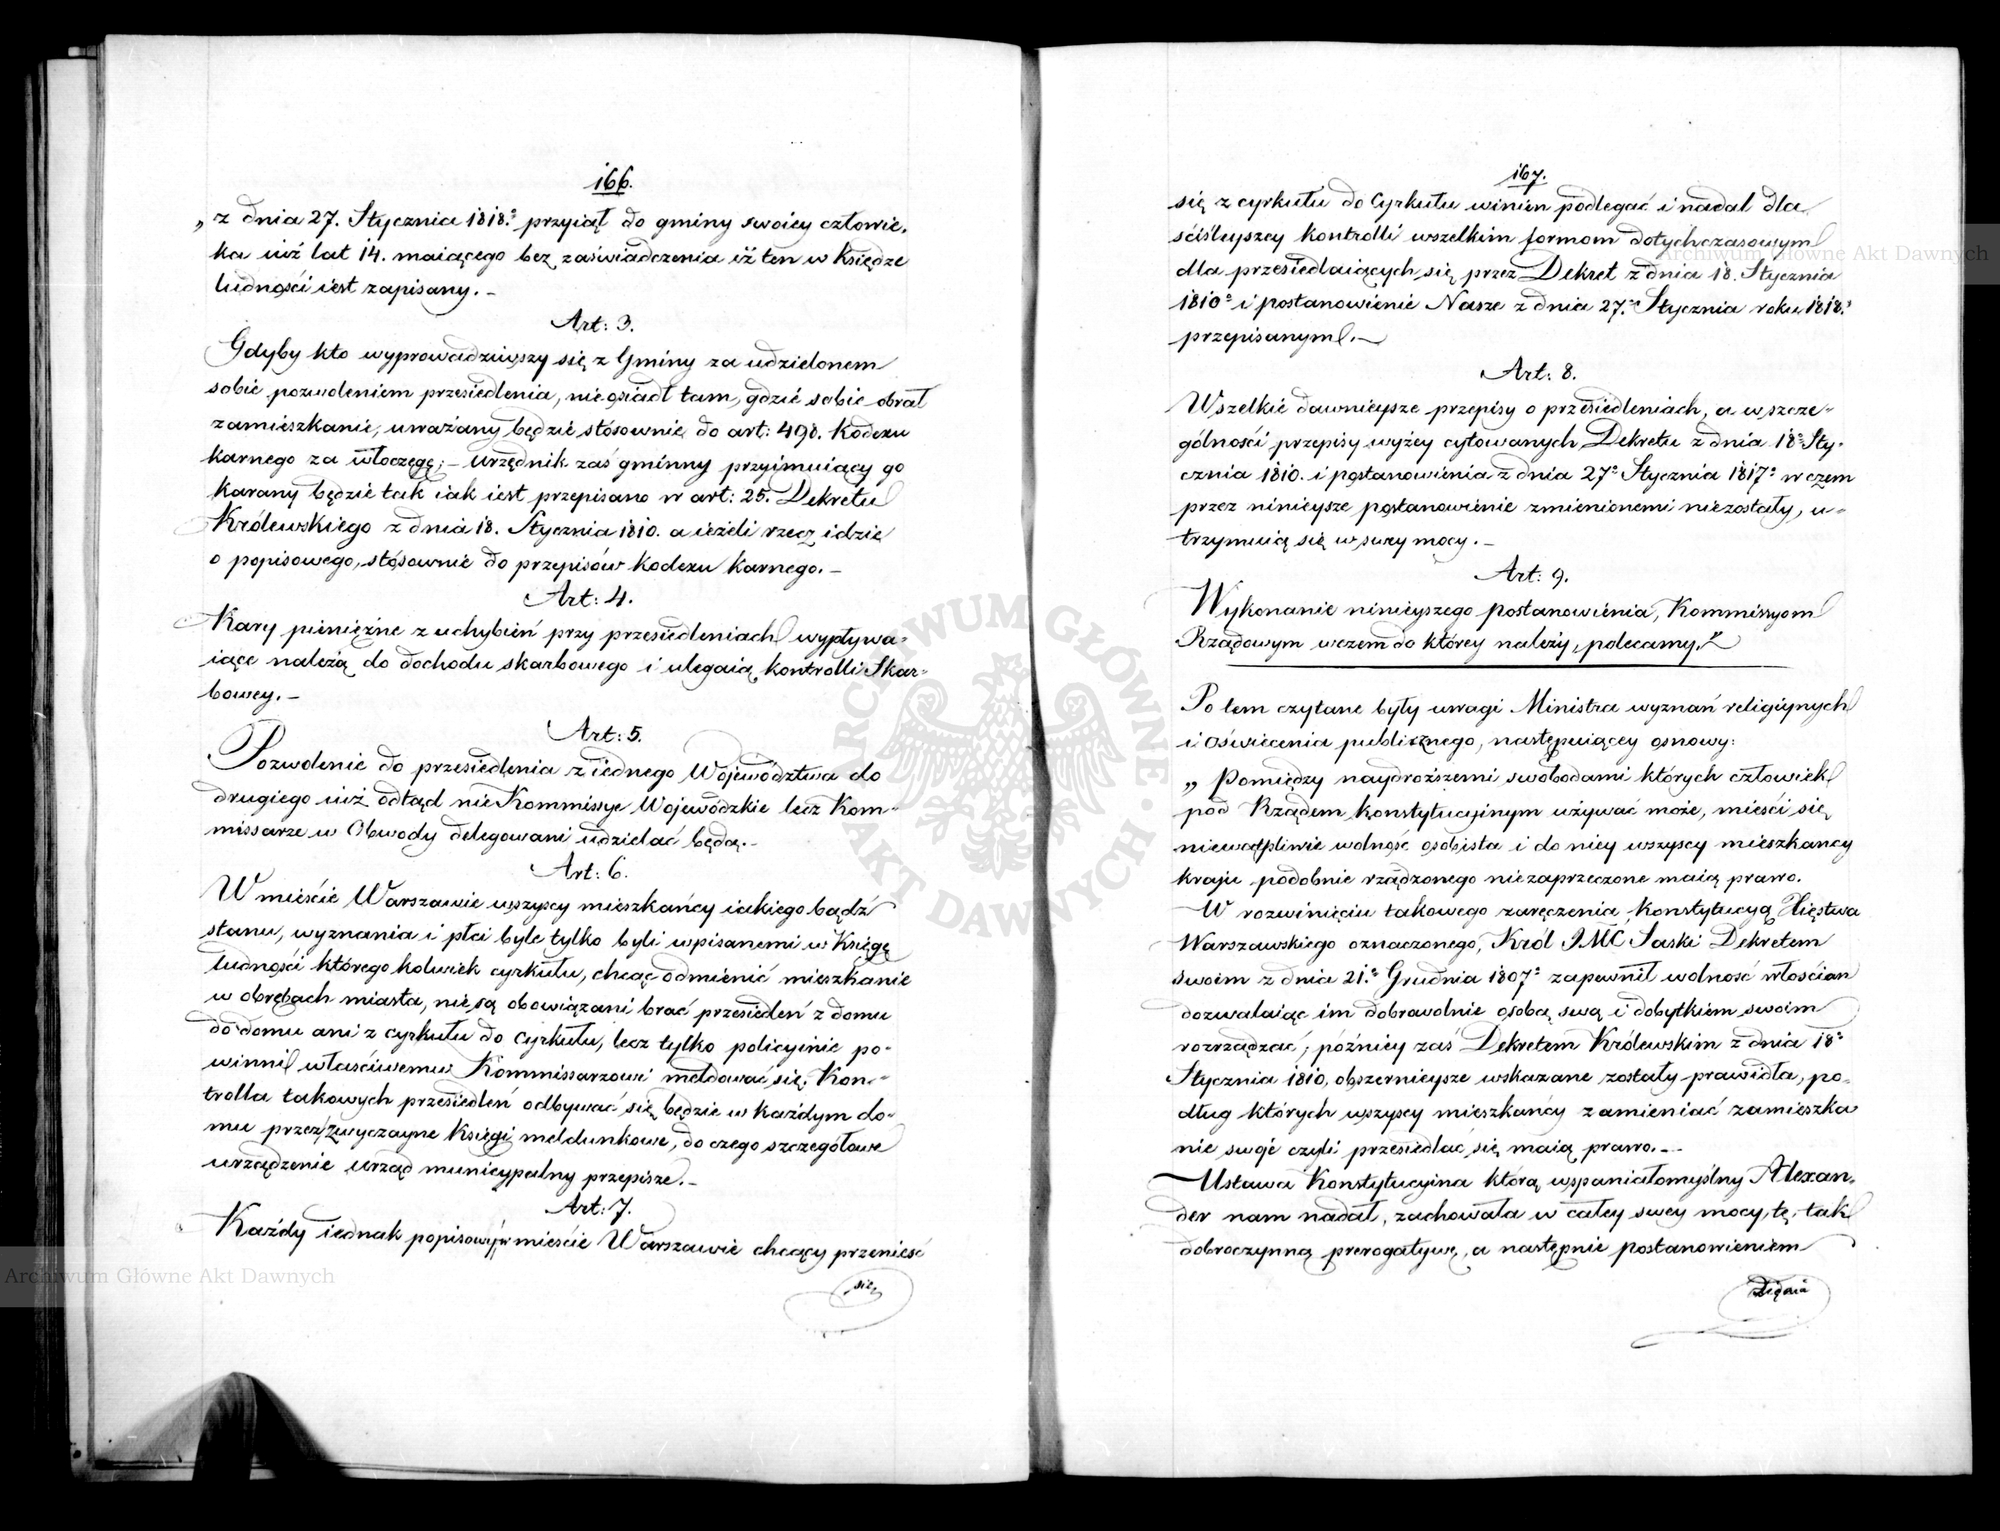 166.
„z dnia 27. Stycznia 1818.º przyiął do gminy swoiey człowie-
ka iuż lat 14. maiącego bez zaświadczenia iż ten w Księdze
ludności iest zapisany. –
Art: 3.
Gdyby kto wyprowadziwszy się z Gminy za udzielonem
sobie pozwoleniem przesiedlenia, nie osiadł tam, gdzie sobie obrał
zamieszkanie, uważany będzie stósownie do art: 490. Kodexu
karnego za włóczęgę; – Urzędnik zaś gminny przyimuiący go
karany będzie tak iak iest przepisano w art: 25. Dekretu
Królewskiego z dnia 18. Stycznia 1810. a ieżeli rzecz idzie
o popisowego, stósownie do przepisów kodexu karnego. –
Art: 4.
Kary pieniężne z uchybień przy przesiedleniach wypływa-
iące należą do dochodu skarbowego i ulegaią kontrolli Skar-
bowey. –
Art: 5.
Pozwolenie do przesiedlenia z iednego Województwa do
drugiego iuż odtąd nie Kommissye Wojewódzkie lecz Kom-
missarze w Obwody delegowani udzielać będą. –
Art: 6.
W mieście Warszawie wszyscy mieszkańcy iakiego bądź
stanu, wyznania i płci byle tylko byli wpisanemi w Księgę
ludności którego kolwiek cyrkułu, chcąc odmienić mieszkanie
w obrębach miasta, nie są obowiązani brać przesiedleń z domu
do domu ani z cyrkułu do Cyrkułu, lecz tylko policyinie po-
winni właściwemu Kommissarzowi meldować się. Kon-
trolla takowych przesiedleń odbywać się będzie w każdym do-
mu przez zwyczayne Księgi meldunkowe, do czego szczegółowe
urządzenie urząd municypalny przepisze. –
Art: 7.
Każdy iednak popisowy w mieście Warszawie chcący przenieść
się
167.
się z cyrkułu do Cyrkułu winien podlegać i nadal dla
ściśleyszey kontrolli wszelkim formom dotychczasowym
dla przesiedlaiących się przez Dekret z dnia 18. Stycznia
1810º i postanowienie Nasze z dnia 27.º Stycznia roku 1818.º
przepisanym. –
Art: 8.
Wszelkie dawnieysze przepisy o przesiedleniach, a w szcze-
gólności przepisy wyżey cytowanych Dekretu z dnia 18º Sty-
cznia 1810. i postanowienia z dnia 27º Stycznia 1817º w czem
przez ninieysze postanowienie zmienionemi niezostały, u-
trzymuią się w swey mocy. –
Art: 9.
Wykonanie ninieyszego postanowienia, Kommissyom
Rządowym w czem do którey należy, polecamy.”
Po tem czytane były uwagi Ministra wyznań religiynych
i oświecenia publicznego, następuiącey osnowy:
„Pomiędzy naydroższemi swobodami których człowiek
pod Rządem konstytucyinym używać może, mieści się
niewątpliwie wolność osobista i do niey wszyscy mieszkańcy
kraju podobnie rządzonego niezaprzeczone maią prawo.
W rozwinięciu takowego zaręczenia Konstytucyą Xięstwa
Warszawskiego oznaczonego, Król JMC Saski Dekretem
swoim z dnia 21.º Grudnia 1807º zapewnił wolność włościan
dozwalaiąc im dobrowolnie osobą swą i dobytkiem swoim
rozrządzać; późniey zaś Dekretem Królewskim z dnia 18º
Stycznia 1810, obszernieysze wskazane zostały prawidła, po-
dług których wszyscy mieszkańcy zamieniać zamieszka
nie swoje czyli przesiedlać się maią prawo. –
– Ustawa Konstytucyina którą wspaniałomyślny Alexan-
der nam nadał, zachowała w całey swey mocy tę tak
dobroczynną prerogatywę, a następnie postanowieniem
z dnia
ARCHIWUM GŁÓWNE AKT DAWNYCH
Archiwum Główne Akt Dawnych
Archiwum Główne Akt Dawnych